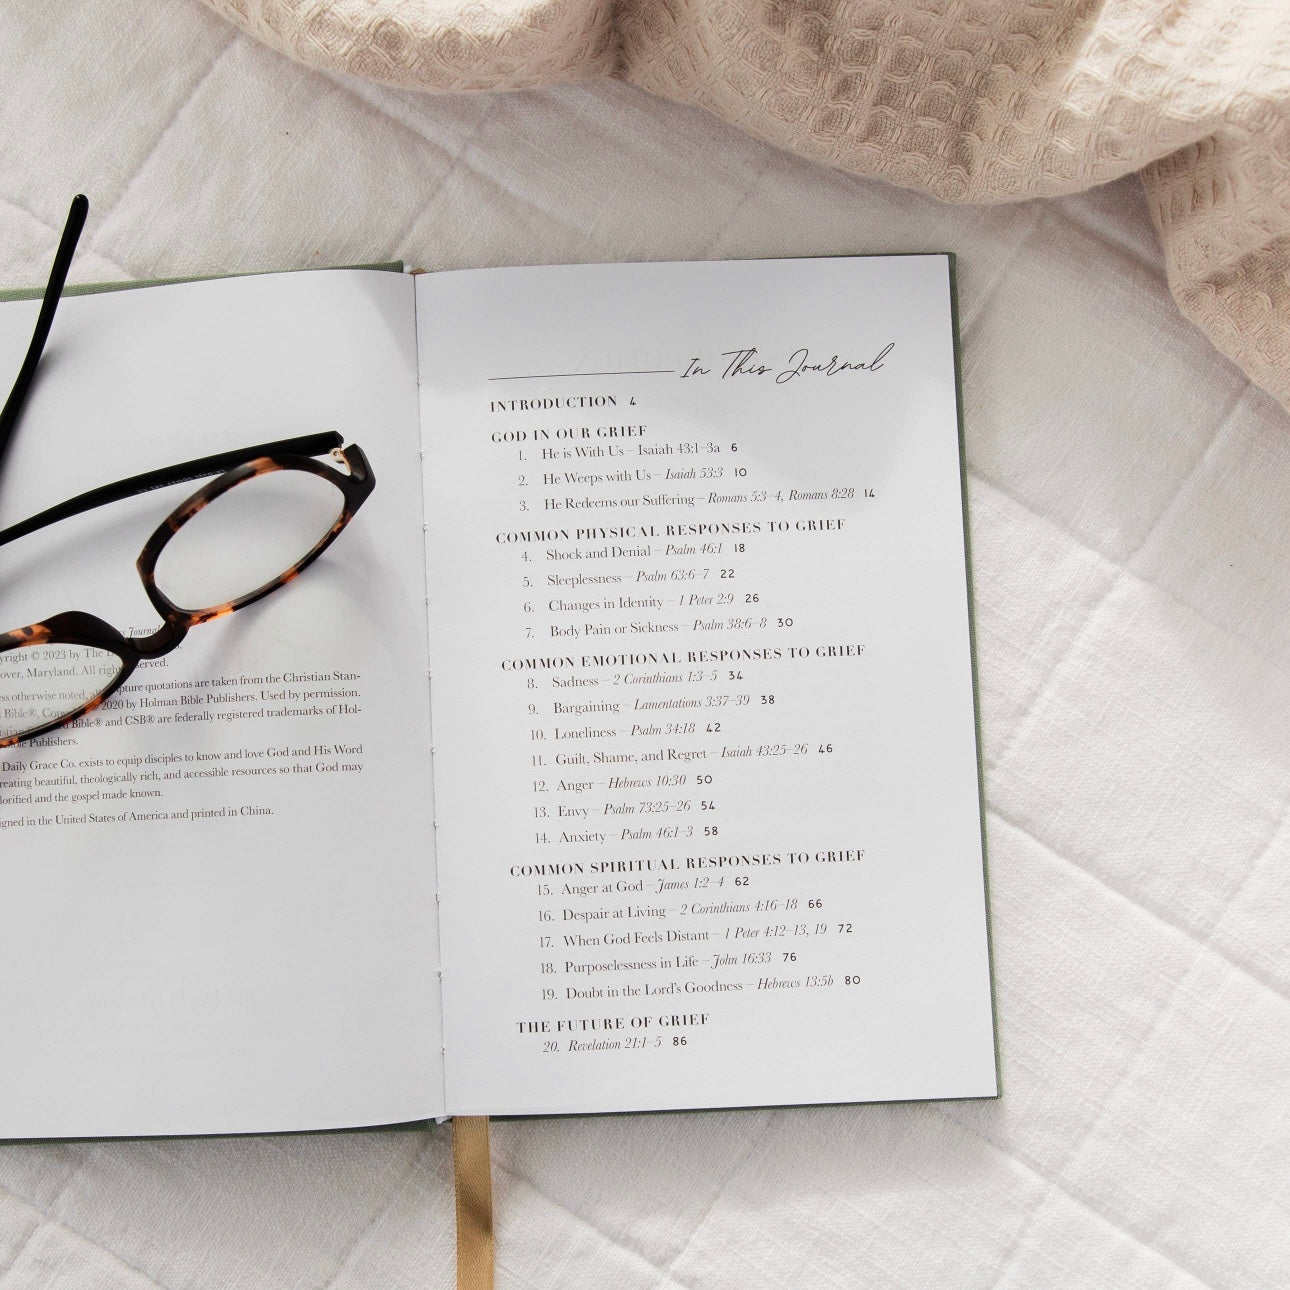 Journal
yright © 2023 by The
over, Maryland. All rights served.
ess otherwise noted, all pture quotations are taken from the Christian Stan-
d Bible®, Cop 2020 by Holman Bible Publishers. Used by permission.
d Bible® and CSB® are federally registered trademarks of Hol-
ble Publishers.
Daily Grace Co. exists to equip disciples to know and love God and His Word
reating beautiful, theologically rich, and accessible resources so that God may
lorified and the gospel made known.
igned in the United States of America and printed in China.
In This Journal
INTRODUCTION 4
GOD IN OUR GRIEF
1. He is With Us – Isaiah 43:1–3a 6
2. He Weeps with Us – Isaiah 53:3 10
3. He Redeems our Suffering – Romans 5:3–4, Romans 8:28 14
COMMON PHYSICAL RESPONSES TO GRIEF
4. Shock and Denial – Psalm 46:1 18
5. Sleeplessness – Psalm 63:6–7 22
6. Changes in Identity – 1 Peter 2:9 26
7. Body Pain or Sickness – Psalm 38:6–8 30
COMMON EMOTIONAL RESPONSES TO GRIEF
8. Sadness – 2 Corinthians 1:3–5 34
9. Bargaining – Lamentations 3:37–39 38
10. Loneliness – Psalm 34:18 42
11. Guilt, Shame, and Regret – Isaiah 43:25–26 46
12. Anger – Hebrews 10:30 50
13. Envy – Psalm 73:25–26 54
14. Anxiety – Psalm 46:1–3 58
COMMON SPIRITUAL RESPONSES TO GRIEF
15. Anger at God – James 1:2–4 62
16. Despair at Living – 2 Corinthians 4:16–18 66
17. When God Feels Distant – 1 Peter 4:12–13, 19 72
18. Purposelessness in Life – John 16:33 76
19. Doubt in the Lord's Goodness – Hebrews 13:5b 80
THE FUTURE OF GRIEF
20. Revelation 21:1–5 86